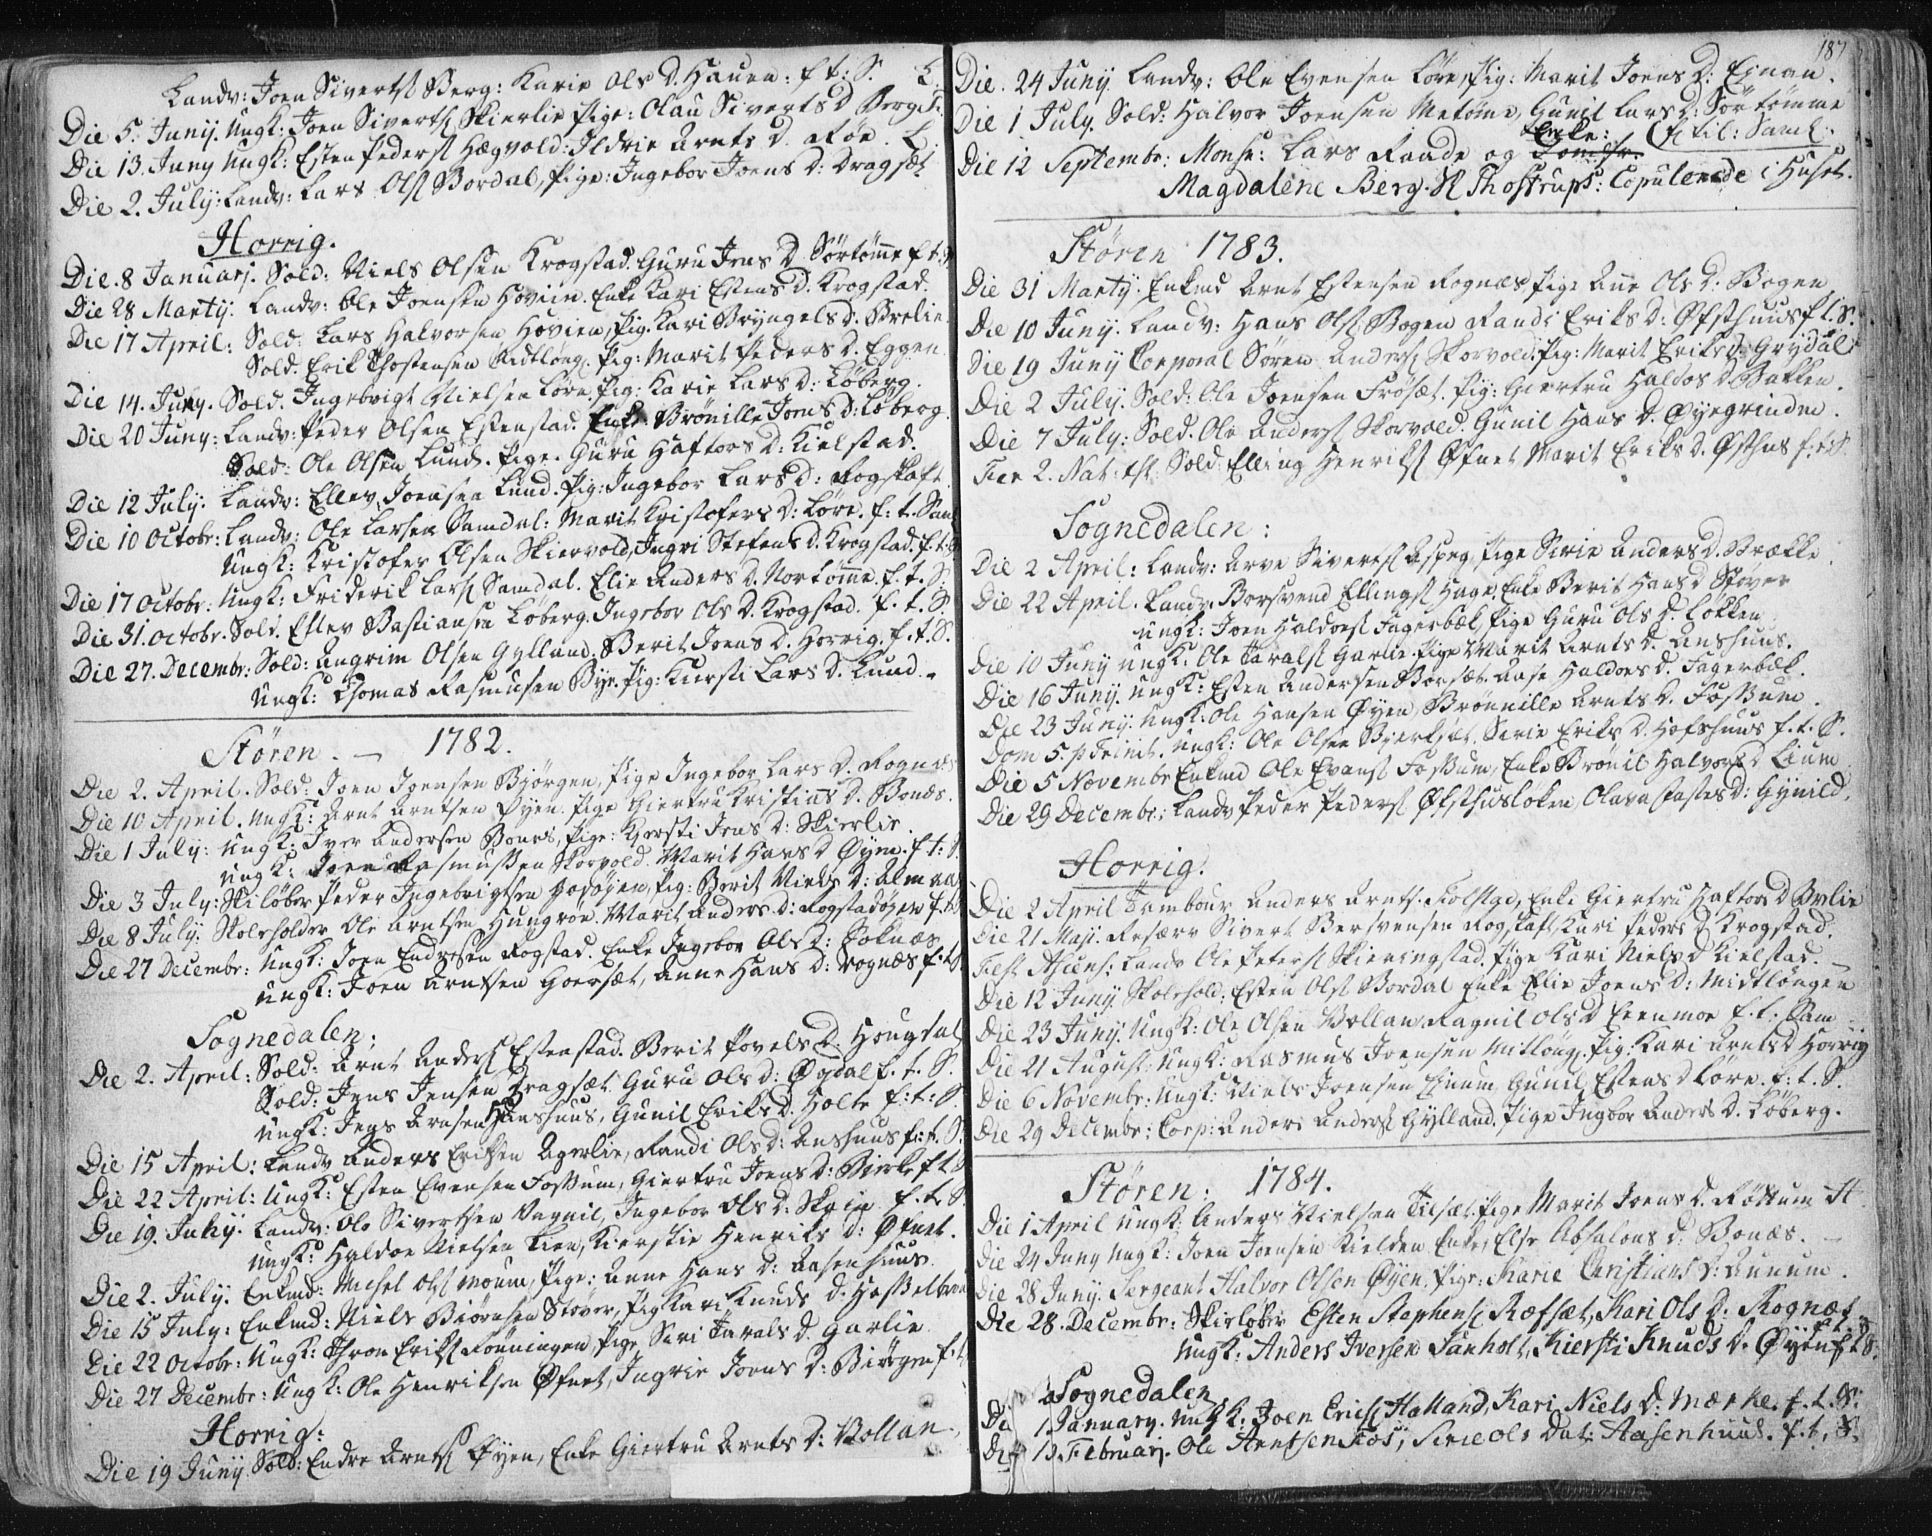 Landv: Joen Siverts Berg: Karie Ols D. Hauen: f. t: S.
Die 5. Junij. Ungk: Joen Siverts Skierlie Pige: Olau Siverts D Berg
Die 13. Juny Ungk: Esten Peders Hægvold: Ildrie Arnts D. Roe.
Die 2. July: Landv: Lars Ols Bordal, Pige: Ingebor Joens D: Dragsæt
Horrig.
Die 8 Januarj. Sold: Niels Olsen Krogstad. Guru Jens D Sørtømme f t:
Die 28 Martij. Landv: Ole Joensen Hovien. Enke Kari Estens d. Krogstad.
Die 17 April: Sold: Lars Halvorsen Hovien, Pig. Kari Bryngels d: Brelie
Sold. Erik Thostensen Midtløng. Pig: Marit Peders D. Eggen
Die 14. Juny. Sold. Ingebrigt Nielsen Løre, Pig: Karie Lars d: Løberg.
Die 20 Juny: Landv: Peder Olsen Estenstad. Enke Brønille Joens D: Løberg.
Sold: Ole Olsen Lund. Pige. Guru Haftors D: Kielstad.
Die 12 July. Landv: Ellev Joensen Lund. Pig: Ingebor Lars d: Rogstaft
Die 10 Octobr: Landv: Ole Larsen Samdal: Marit Kristofers D: Løre. f: t. Sam
Ungk: Kristofer Olsen Skiervold, Ingri Stefens d. Krogstad. f. t:
Die 17 Octobr: Ungk: Friderik Lars Samdal. Elie Anders D. Nortømme. f. t. S:
Die 31. Octobr. Sold. Ellev Bastiansen Løberg. Ingebor Ols D. Krogstad. f. t. S.
Die 27. Decembr: Sold: Angrim Olsen Gylland. Berit Joens D. Horrig. f. t. S.
Ungk: Thomas Rasmusen Bye. Pig: Kiersti Lars D. Lund.
Støren. — 1782.
Die 2. April. Sold: Joen Joensen Bjørgen, Pige Ingebor Lars D. Rognæs
Die 10 April. Ungk: Arnt Arntsen Øyen. Pige Giertru Kristians D. Bonæs.
Die 1 July: Ungk: Iver Andersen Bones, Pige: Kjersti Jens D: Skierlie.
Ungk: Joen Rasmussen Skorvold. Marit Hans D Øyen. f. t: S.
Die 3 July: Skiløber Peder Ingebrigtsen Godøyen, Pig: Berit Niels D: Almaa
Die 8 July: Skoleholder Ole Arntsen Hungrøn. Marit Anders. D: Rogstadøyen f.
Die 27 Decembr: Ungk: Joen Endresen Rogstad. Enke Ingebor Ols D: Soknæs
Ungk: Joen Arntsen Goersæt, Anne Hans D: Rognæs f: t
Sognedalen:
Die 2. April: Sold: Arnt Anders Estenstad. Berit Povels D. Hougdal
Sold: Jens Jensen Dragsæt. Guru Ols D: Øydal f. t. S.
Ungk: Jens Arnsen Hanshuus, Gunil Eriks D. Holte f: t: S.
Die 15 April: Landv Anders Erichsen Agerlie, Randi Ols D: Anshuus f: t. S:
Die 22 April: Ungk: Esten Evensen Fossum, Giertru Joens D: Birke f t
Die 19. Juny. Landv: Ole Sivertsen Vagnil, Ingebor Ols D: Skein f. t. S
Ungk: Haldor Nielsen Lien, Kierstie Henriks D: Øfnet.
Die 2. July. Enkmd: Michel Ols Moum, Pige: Anne Hans D: Aasenhuus
Die 15 July: Enkmd: Niels Biørnsen Støver, Pig Kari Knuds d. Hasselbroe
Die 22 Octobr: Ungk: Thron Eriks Rønningen Pige Siri Tarals D. Garlie
Die 27 Decembr: Ungk: Ole Henriksen Øfnet, Ingrie Joens D: Biørgen f: t
Horrig:
Die 19 Juny Sold: Endre Arnts Øyen, Enke Giertru Arnts D: Vollan
187
Die. 24 Juny. Landv: Ole Evensen Løre, Pig: Marit Joens D: Ejnan.
Die 1 July. Sold: Halvor Joensen Metømme, Gunil Lars D: Sørtømme
Enke: f. til: Saml:
Die 12 Septembr: Monsr: Lars Raade og Jomfr.
Magdalene Berg. H Thostrups: Copulerede i Huset.
Støren 1783.
Die 31 Martij. Enkmd Arnt Estensen Rognæs, Pige Ane Ols D: Bogen
Die 10 Juny. Landv: Hans Ols Bogen Randi Eriks D: Øfsthuus f t. S.
Die 19 Juny Corporal Søren Anders Skorvold. Pig: Marit Eriks d: Grydal
Die 2 July. Sold: Ole Joensen Frøsæt. Pig: Giertru Haldos D. Bakken.
Die 7 July: Sold. Ole Anders Skorvold. Gunil Hans D. Øyegrinden.
Fer 2. Nat: Chr Sold: Elling Henriks Øfnet Marit Eriks D. Østhus f. t. S.
Sognedalen:
Die 2 April: Landv: Arve Siverts Aspeg, Pige Sirie Anders d. Brække
Die 22 April. Landv. Borsvend Ellings Hage, Enke Berit Hans d Støver
Ungk: Joen Haldors Fagerbæk Pige Guru Ols D. Løkken
Die 10 Juny Ungk. Ole Tarals Garlie Pige Marit Arnts D. Anshuus.
Die 16 Juny. Ungk: Esten Andersen Borset. Aase Haldors d. Fagerbæk.
Die 23 Juny. Ungk: Ole Hansen Øyen, Brønnille Arnts D. Fossum.
Dom 5. p Trinit. Ungk: Ole Olsen Bjerkset, Sirie Eriks D. Hofshuus f. t. S.
Die 5 Novembr Enkmd Ole Evans Fossum, Enke Brønil Halvors d Lium
Die 29 Decembr: Landv Peder Peders Øfsthusloken Olava Fastes d: Gynild.
Horrig.
Die 2 April Tambour Anders Arnts. Kolstad, Enke Giertru Haftors D Brelie
Die 21 Maji. Resærv Sivert Bersvensen Rogstaft Kari Peders d Krogstad.
Fest Ascens: Landv Ole Peters Skieringstad. Pige Kari Niels d Kielstad.
Die 12 Juny Skolehold: Esten Ols Bordal Enke Elie Joens D: Midtløngen
Die 23 Juny: Ungk: Ole Olsen Vollan Ragnil Ols D Eeenmoe f. t: Sam
Die 21 August: Ungk: Rasmus Joensen Mitløng. Pig: Kari Arnts d Horrig
Die 6 Novembr: Ungk: Niels Joensen Ejnum Gunil Estens d Løre. f: t. S.
Die 29 Decembr: Corp: Anders Anders Gylland. Pige Ingbor Anders D. Løberg.
Støren: 1784.
Die 1 April Ungk: Anders Nielsen Tilset. Pige Marit Joens D. Røttum
Die 24 Juny Ungk: Joen Joensen Kielden Enke, Else Absalons D: Bonæs.
Die 28 Juny. Sergeant Halvor Olsen Øyen, Pige: Marie Christians D: Aunum.
Die 28. Decembr: Skierløber Esten Stephens Ræfsæt, Kari Ols D. Rognæs
Ungk: Anders Iversen Sanholt, Kiersti Knuds D. Øyen f t S.
Sognedalen
Die 1 January. Ungk. Joen Erics Halland, Kari Niels D. Mærke. f. t. S.
Die 13. Februarj. Ole Arntsen Foss, Sirie Ols Dat: Aasenhuus. f. t. S.